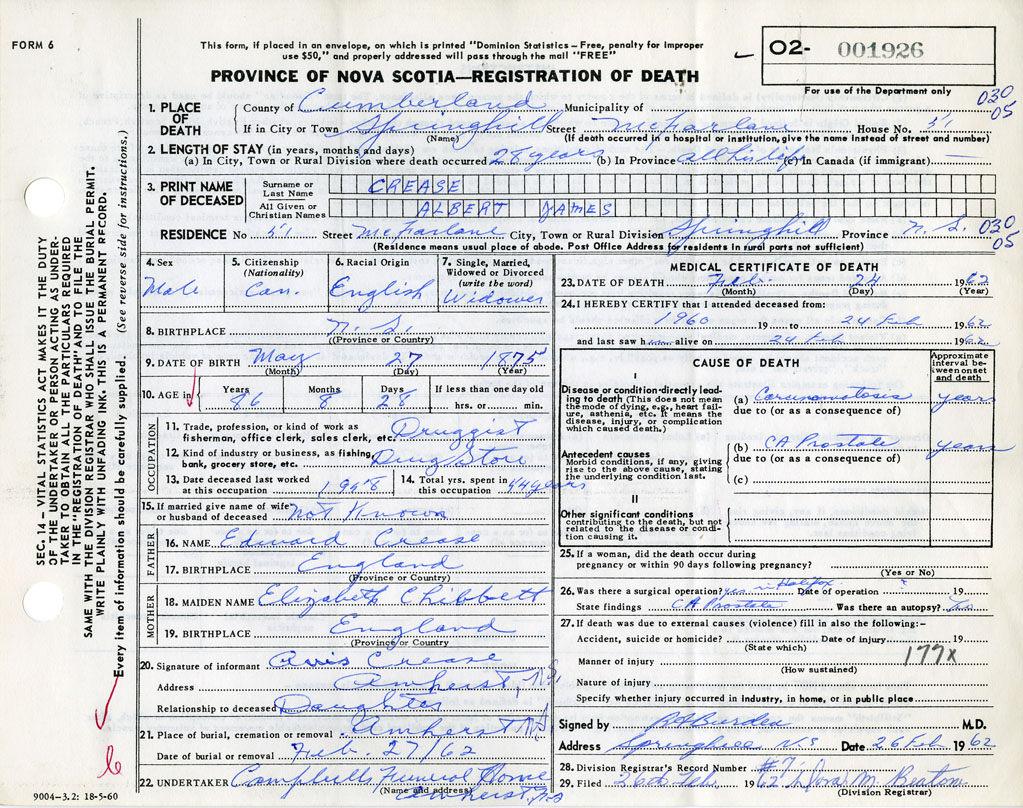 FORM 6
This form, if placed in an envelope, on which is printed "Dominion Statistics – Free, penalty for improper
use $50," and properly addressed will pass through the mail "FREE"
PROVINCE OF NOVA SCOTIA—REGISTRATION OF DEATH
O2- 001926
For use of the Department only
030
05
1. PLACE OF DEATH
County of Cumberland Municipality of
If in City or Town Springhill Street McFarlane House No. 51
(Name) (If death occurred in a hospital or institution, give the name instead of street and number)
2. LENGTH OF STAY (in years, months and days)
(a) In City, Town or Rural Division where death occurred 28 years (b) In Province all his life (c) In Canada (if immigrant)
3. PRINT NAME OF DECEASED
Surname or Last Name CREASE
All Given or Christian Names ALBERT JAMES
RESIDENCE No 51 Street McFarlane City, Town or Rural Division Springhill Province N.S. 030
05
(Residence means usual place of abode. Post Office Address for residents in rural parts not sufficient)
4. Sex
Male
5. Citizenship
(Nationality)
Can.
6. Racial Origin
English
7. Single, Married,
Widowed or Divorced
(write the word)
Widower
8. BIRTHPLACE N.S.
(Province or Country)
9. DATE OF BIRTH May 27 1875
(Month) (Day) (Year)
10. AGE in
Years Months Days If less than one day old
86 8 28 hrs. or min.
OCCUPATION
11. Trade, profession, or kind of work as
fisherman, office clerk, sales clerk, etc. Druggist
12. Kind of industry or business, as fishing,
bank, grocery store, etc. Drug Store
13. Date deceased last worked
at this occupation 1958
14. Total yrs. spent in
this occupation 44 years
15. If married give name of wife
or husband of deceased Not Known
FATHER
16. NAME Edward Crease
17. BIRTHPLACE England
(Province or Country)
MOTHER
18. MAIDEN NAME Elizabeth Chibbett
19. BIRTHPLACE England
(Province or Country)
20. Signature of informant Avis Crease
Address Amherst, N.S.
Relationship to deceased Daughter
21. Place of burial, cremation or removal Amherst N.S.
Date of burial or removal Feb. 27/62
22. UNDERTAKER Campbells Funeral Home
(Name and address)
Amherst, N.S
MEDICAL CERTIFICATE OF DEATH
23. DATE OF DEATH Feb. 24 1962
(Month) (Day) (Year)
24. I HEREBY CERTIFY that I attended deceased from:
1960 19 to 24 Feb 1962
and last saw h alive on 24 Feb 1962
CAUSE OF DEATH
Approximate
interval be-
tween onset
and death
I
Disease or condition directly lead-
ing to death (This does not mean
the mode of dying, e.g., heart fail-
ure, asthenia, etc. It means the
disease, injury, or complication
which caused death.)
(a) Carcinomatosis years
due to (or as a consequence of)
Antecedent causes
Morbid conditions, if any, giving
rise to the above cause, stating
the underlying condition last.
(b) CA Prostate years
due to (or as a consequence of)
(c)
II
Other significant conditions
contributing to the death, but not
related to the disease or condi-
tion causing it.
25. If a woman, did the death occur during
pregnancy or within 90 days following pregnancy?
(Yes or No)
26. Was there a surgical operation? yes in Halifax Date of operation ? 19
State findings CA Prostate Was there an autopsy?
27. If death was due to external causes (violence) fill in also the following:–
Accident, suicide or homicide? Date of injury 19
(State which)
Manner of injury 177x
(How sustained)
Nature of injury
Specify whether injury occurred in industry, in home, or in public place
Signed by M.D.
Address Springhill N.S Date 26 Feb 1962
28. Division Registrar's Record Number #7
29. Filed 26th Feb. 1962 Doras M. Beaton
(Division Registrar)
SEC. 14 – VITAL STATISTICS ACT MAKES IT THE DUTY
OF THE UNDERTAKER OR PERSON ACTING AS UNDER-
TAKER TO OBTAIN ALL THE PARTICULARS REQUIRED
IN THE "REGISTRATION OF DEATH" AND TO FILE THE
SAME WITH THE DIVISION REGISTRAR WHO SHALL ISSUE THE BURIAL PERMIT.
WRITE PLAINLY WITH UNFADING INK. THIS IS A PERMANENT RECORD.
Every item of information should be carefully supplied. (See reverse side for instructions.)
9004-3.2: 18-5-60